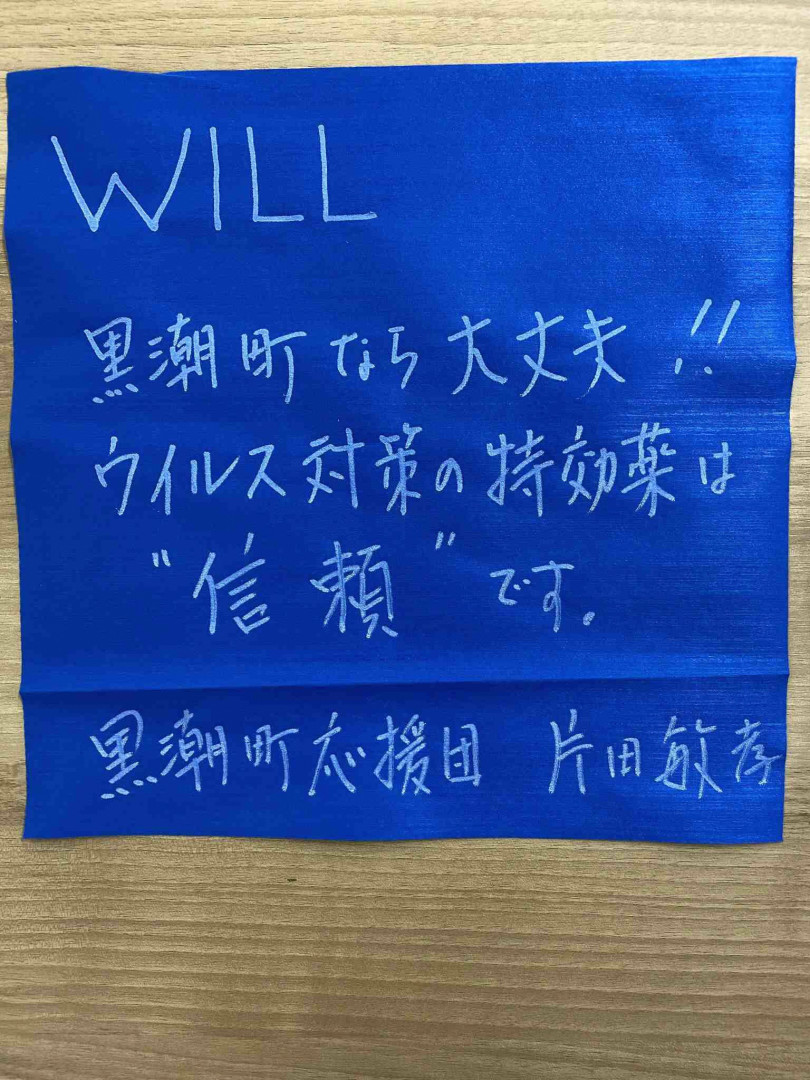 WILL
黒潮町なら大丈夫!!
ウイルス対策の特効薬は
"信頼"です。
黒潮町応援団 片田敏孝